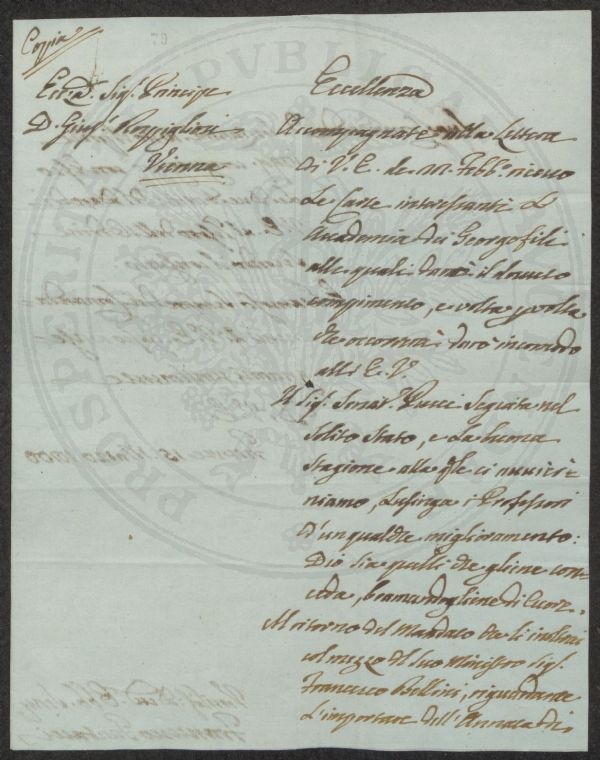 Coppia
79
Ecc:mo Sigr. Principe
D. Giusp. Rospigliosi
Vienna
Eccellenza
Accompagnate colla Lettera
Di V. E. de Febbo. ricevo
Le carte interessanti L'
Accademia dei Georgofili
alle quali darò il dovuto
compimento, e volta p volta
che occorrerà darò incomodo
alla E. V.
Il Sigr. Senatre. Pucci Seguita nel
Solito Stato, e La buona
Stagione alla qle ci avvici=
niamo, Lusinga i Professori
D'un qualche miglioramento:
Dio sia quelli che gliene con=
ceda, bramandogliene di Cuore.
Al ritorno del Mandato che li inoltrai
col mezzo del suo Ministro Sigr.
Francesco Bellini, riguardante
L'importare dell'Annata di
PROSPERITATI PUBLICAE AUGENDAE